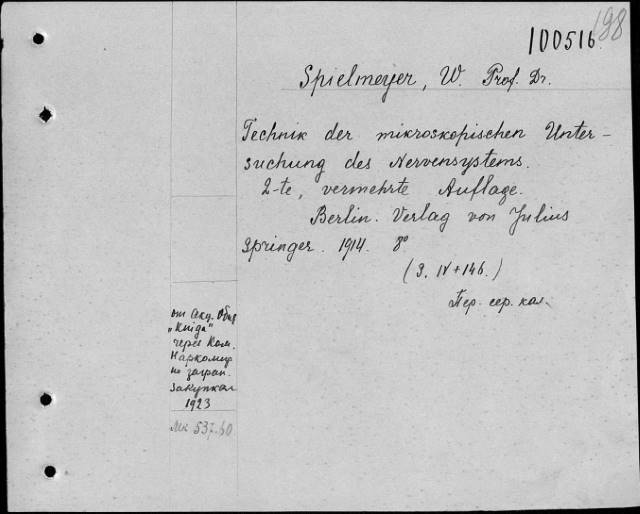 198
100516
Spielmeyer, W. Prof. Dr.
Technik der mikroskopischen Unter-
suchung des Nervensystems.
2-te, vermehrte Auflage.
Berlin. Verlag von Julius
Springer. 1914. 8°
(S. IV+146.)
Пер. сер. кол.
от Акц. Общ
„Книга"
через Ком.
Наркомпр
по загран.
закупкам
1923
Мк 537.60